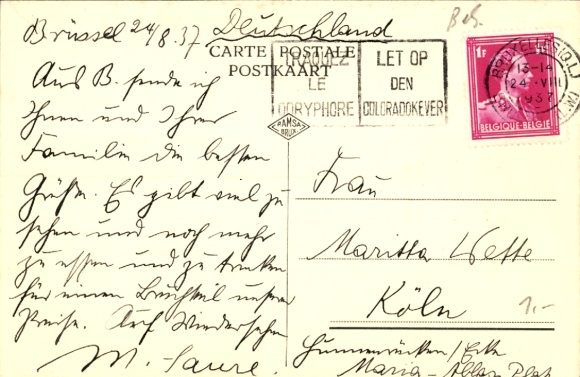 Brüssel 24/8.37 Deutschland
Bel.
CARTE POSTALE
POSTKAART
TRAQUEZ
LE
DORYPHORE
LET OP
DEN
COLORADOKEVER
1F
BRUXELLES (Q.L.)
13-14
24 VIII
1937
BELGIQUE-BELGIE
RAMSA
BRUX.
Aus B. sende ich
Ihnen und Ihrer
Familie die besten
Grüße. Es gibt viel zu
sehen und noch mehr
zu essen und zu trinken
für einen Bruchteil unserer
Preise. Auf Wiedersehen
M.
Frau
Maritta Wette
Köln
1.-
Hunnenrücken / Ecke
Maria-Ablass Platz